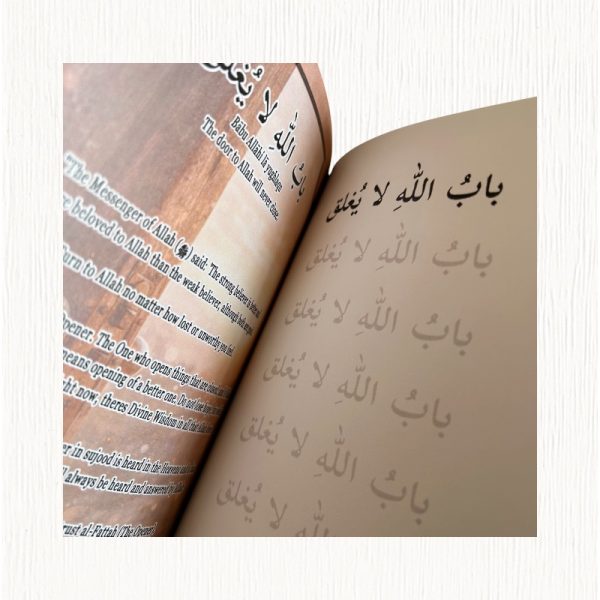 بابُ اللّٰهِ لا يُغلق
Bābu Allāhi lā yughlaqu
The door to Allah will never close.
The Messenger of Allah (ﷺ) said: The strong believer is better and
re beloved to Allah than the weak believer, although both are good.
Turn to Allah no matter how lost or unworthy you feel.
Opener. The One who opens things that are
means opening of a better one. Do not
ght now, theres Divine Wisdom in all that Allah
er in sujood is heard in the Heavens and
l always be heard and answered by Allah
rust al-Fattah (The Opener)
بابُ اللّٰهِ لا يُغلق
بابُ اللّٰهِ لا يُغلق
بابُ اللّٰهِ لا يُغلق
بابُ اللّٰهِ لا يُغلق
بابُ اللّٰهِ لا يُغلق
بابُ اللّٰهِ لا يُغلق